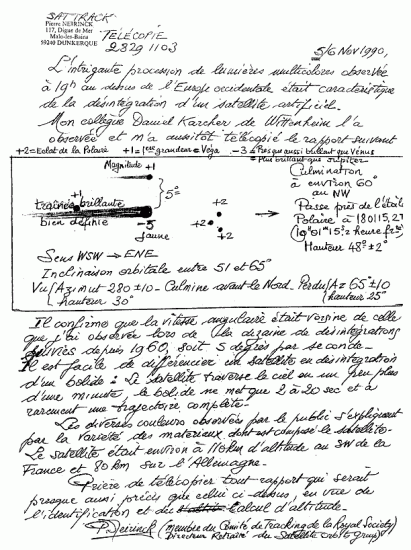 SAT TRACK
Pierre NEIRINCK
117, Digue de Mer
Malo-les-Bains
59240 DUNKERQUE
TELÉCOPIE
2829 1103
5/6 Nov 1990,
L'intrigante procession de lumières multicolores observée
à 19h au dessus de l'Europe occidentale était caractéristique
de la désintégration d'un satellite artificiel.
Mon collègue Daniel Karcher de Wittenheim l'a
observée et m'a aussitôt télécopié le rapport suivant
+2=Eclat de la Polaire +1=1ère grandeur=Véga -3=Presque aussi brillant que Vénus
=Plus brillant que Jupiter
Magnitude +1
+1
5°
traînée brillante
bien définie
-3
jaune
+2
+2
+2
Culmination
à environ 60°
au NW
Passe près de l'étoile
Polaire à 18 01 15,27
(19h 01m 15s,2 heure
Hauteur 48°±2°
Sens WSW → ENE
Inclinaison orbitale entre 51 et 65°
Vu Azimut 280±10 - Culmine avant le Nord. Perdu Az 65°±10
hauteur 30°
hauteur 25°
Il confirme que la vitesse angulaire était voisine de celle
que j'ai observée lors de la dizaine de désintégrations
suivies depuis 1960, soit 5 degrés par seconde.
Il est facile de différencier un satellite en désintégration
d'un bolide: Le satellite traverse le ciel en un peu plus
d'une minute, le bolide ne met que 2 à 20 sec et a
rarement une trajectoire complète.
Les diverses couleurs observées par le public s'expliquent
par la variété des matériaux dont est composé le satellite.
Le satellite était environ à 110 km d'altitude au SW de la
France et 80 km sur l'Allemagne.
Prière de télécopier tout rapport qui serait
presque aussi précis que celui ci-dessus, en vue de
l'identification et du calcul d'altitude.
P. Neirinck (membre du Comité de Tracking de la Royal Society)
Directeur Retraité du Satellite orbits group)